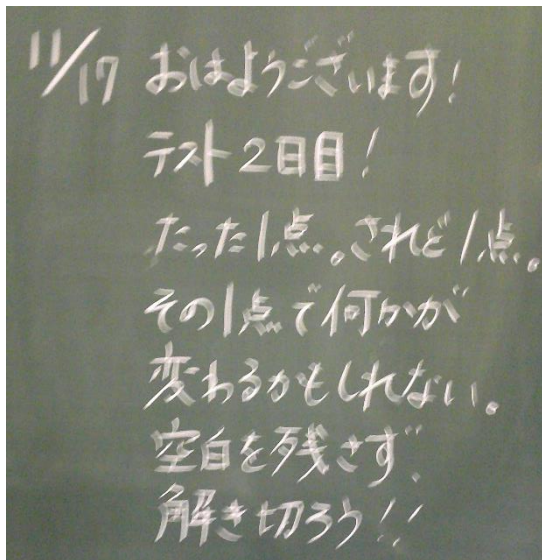 11/17 おはようございます!
テスト2日目!
たった1点。されど1点。
その1点で何かが
変わるかもしれない。
空白を残さず、
解き切ろう!!